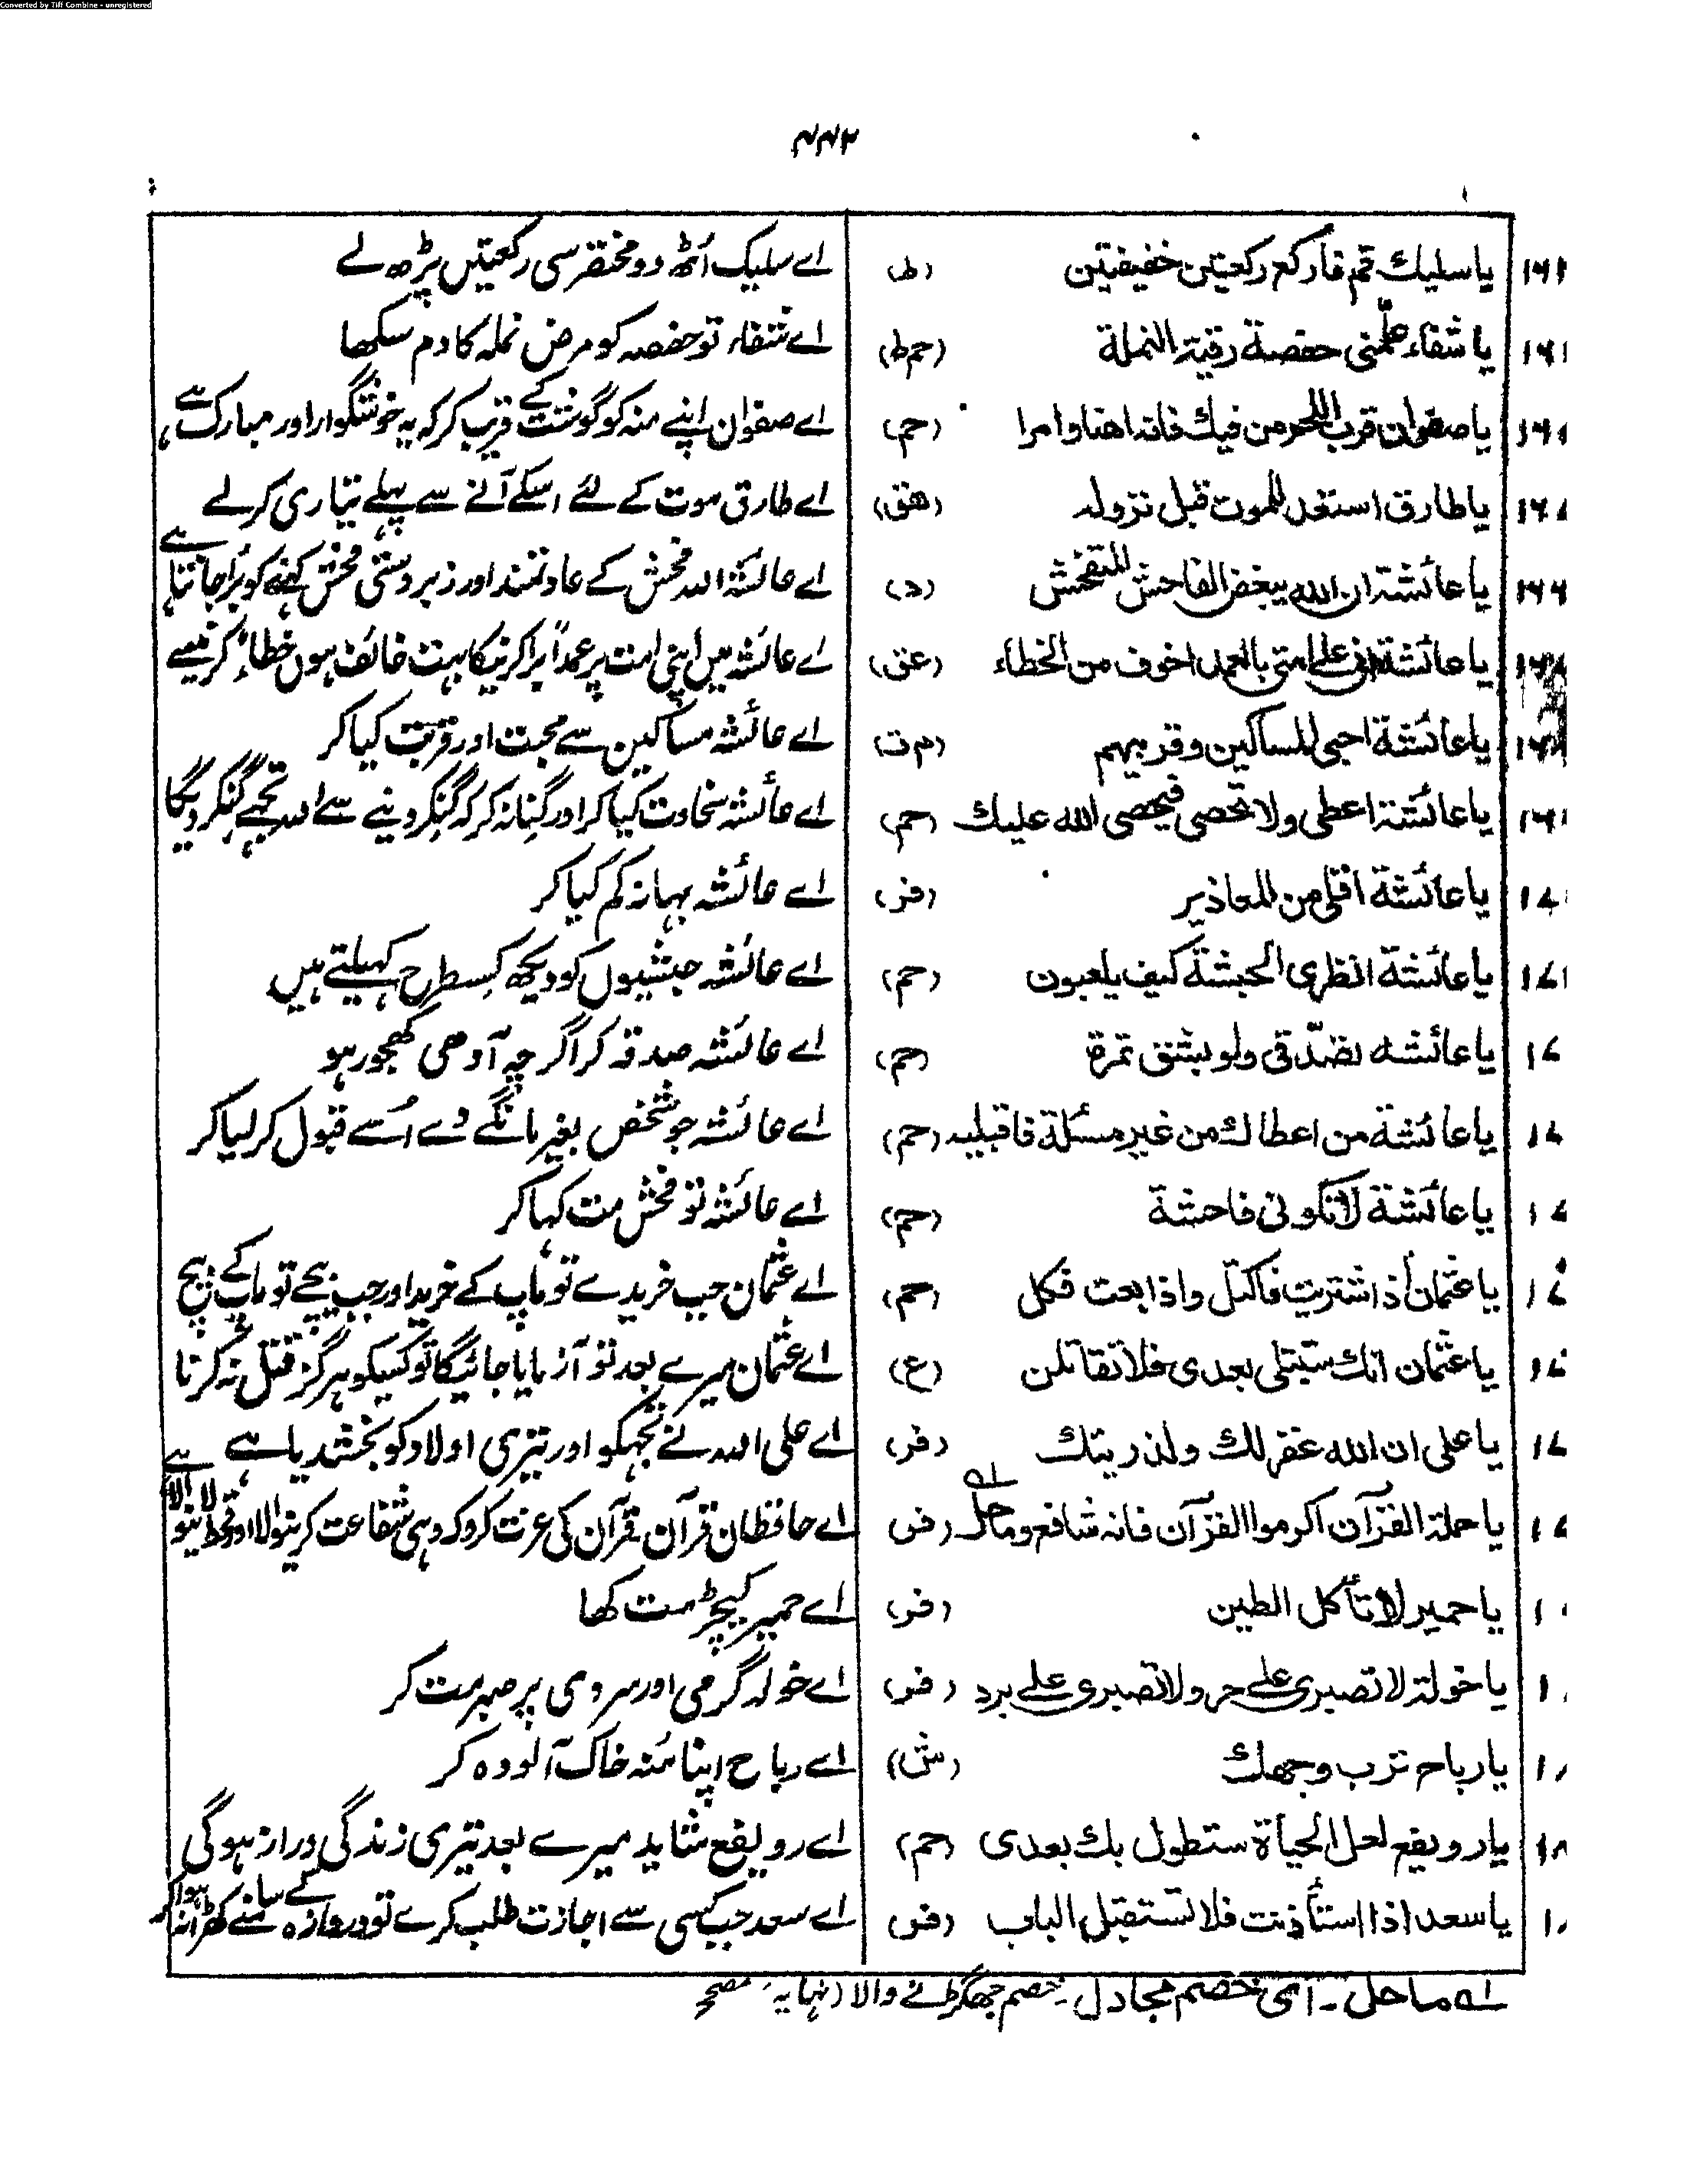 Converted by Tiff Combine - unregistered
۴۴۲
یا سلیك قم فارکع رکعتین خفیفتین (ط) اے سلیک اُٹھ دو مختصر سی رکعتیں پڑھ لے
یا شفاء علّمنی حفصة رقیة النملة (حم ط) اے شفاء تو حفصہ کو مرض نملہ کا دم سکھا
یا صفوان قرب اللحم من فیك فانه اهنا وامرا (حم) اے صفوان اپنے منہ کو گوشت کے قریب کر کہ یہ خوشگوار اور مبارک ہے
یا طارق استعد للموت قبل نزوله (هق) اے طارق موت کے لئے اسکے آنے سے پہلے تیاری کر لے
یا عائشة ان الله یبغض الفاحش المتفحش (د) اے عائشہ اللہ فحش کے عادتمند اور زبردستی فحش کہنے کو بُرا جانتا ہے
یا عائشة انی علی امتی بالعمد اخوف من الخطاء (عق) اے عائشہ میں اپنی امت پر عمداً برا کرنیکا بہت خائف ہوں خطاءً کرنیسے
یا عائشة احبی المساکین وقربیهم (م ت) اے عائشہ مساکین سے محبت اور قربت کیا کر
یا عائشة اعطی ولا تحصی فیحصی الله علیك (حم) اے عائشہ سخاوت کیا کر اور گِنا نہ کر کہ گِنکر دینے سے اللہ تجھے گِنکر دیگا
یا عائشة اقلی من المعاذیر (فر) اے عائشہ بہانہ کم کیا کر
۱۷۱ یا عائشة انظری الحبشة کیف یلعبون (حم) اے عائشہ حبشیوں کو دیکھ کِسطرح کھیلتے ہیں
یا عائشه تصدّقی ولو بشق تمرة (حم) اے عائشہ صدقہ کر اگرچہ آدھی کھجور ہو
یا عائشة من اعطاك من غیر مسئلة فاقبلیه (حم) اے عائشہ جو شخص بغیر مانگے دے اُسے قبول کر لیا کر
یا عائشة لا تکونی فاحشة (حم) اے عائشہ تو فحش مت کہا کر
یا عثمان اذا اشتریت فاکتل واذا بعت فکل (حم) اے عثمان جب خریدے تو ماپ کے خرید اور جب بیچے تو ماپ کے بیچ
یا عثمان انك ستبتلی بعدی فلا تقاتلن (ع) اے عثمان میرے بعد تو آزمایا جائیگا تو کسیکو ہرگز قتل نہ کرنا
یا علی ان الله غفر لك ولذریتك (فر) اے علی اللہ نے تجھکو اور تیری اولاد کو بخشدیا ہے
یا حملة القرآن اکرموا القرآن فانه شافع وماحل (فر) اے حافظان قرآن، قرآن کی عزت کرو کہ وہی شفاعت کرنیوالا
یا حمیر لا تأکل الطین (فر) اے حمیر کیچڑ مت کھا
یا خولة لا تصبری علی حر ولا تصبری علی برد (فر) اے خولہ گرمی اور سردی پر صبر مت کر
یا رباح ترب وجهك (ش) اے رباح اپنا مُنہ خاک آلودہ کر
یا رویفع لعل الحیاة ستطول بك بعدی (حم) اے رویفع شاید میرے بعد تیری زندگی دراز ہوگی
یا سعد اذا استأذنت فلا تستقبل الباب (فر) اے سعد جب کسی سے اجازت طلب کرے تو دروازہ کے سامنے کھڑا نہ ہوا کر
لہ ماحل ۔ ای خصم مجادل ۔ خصم جھگڑنے والا (نہایہ، مصحح